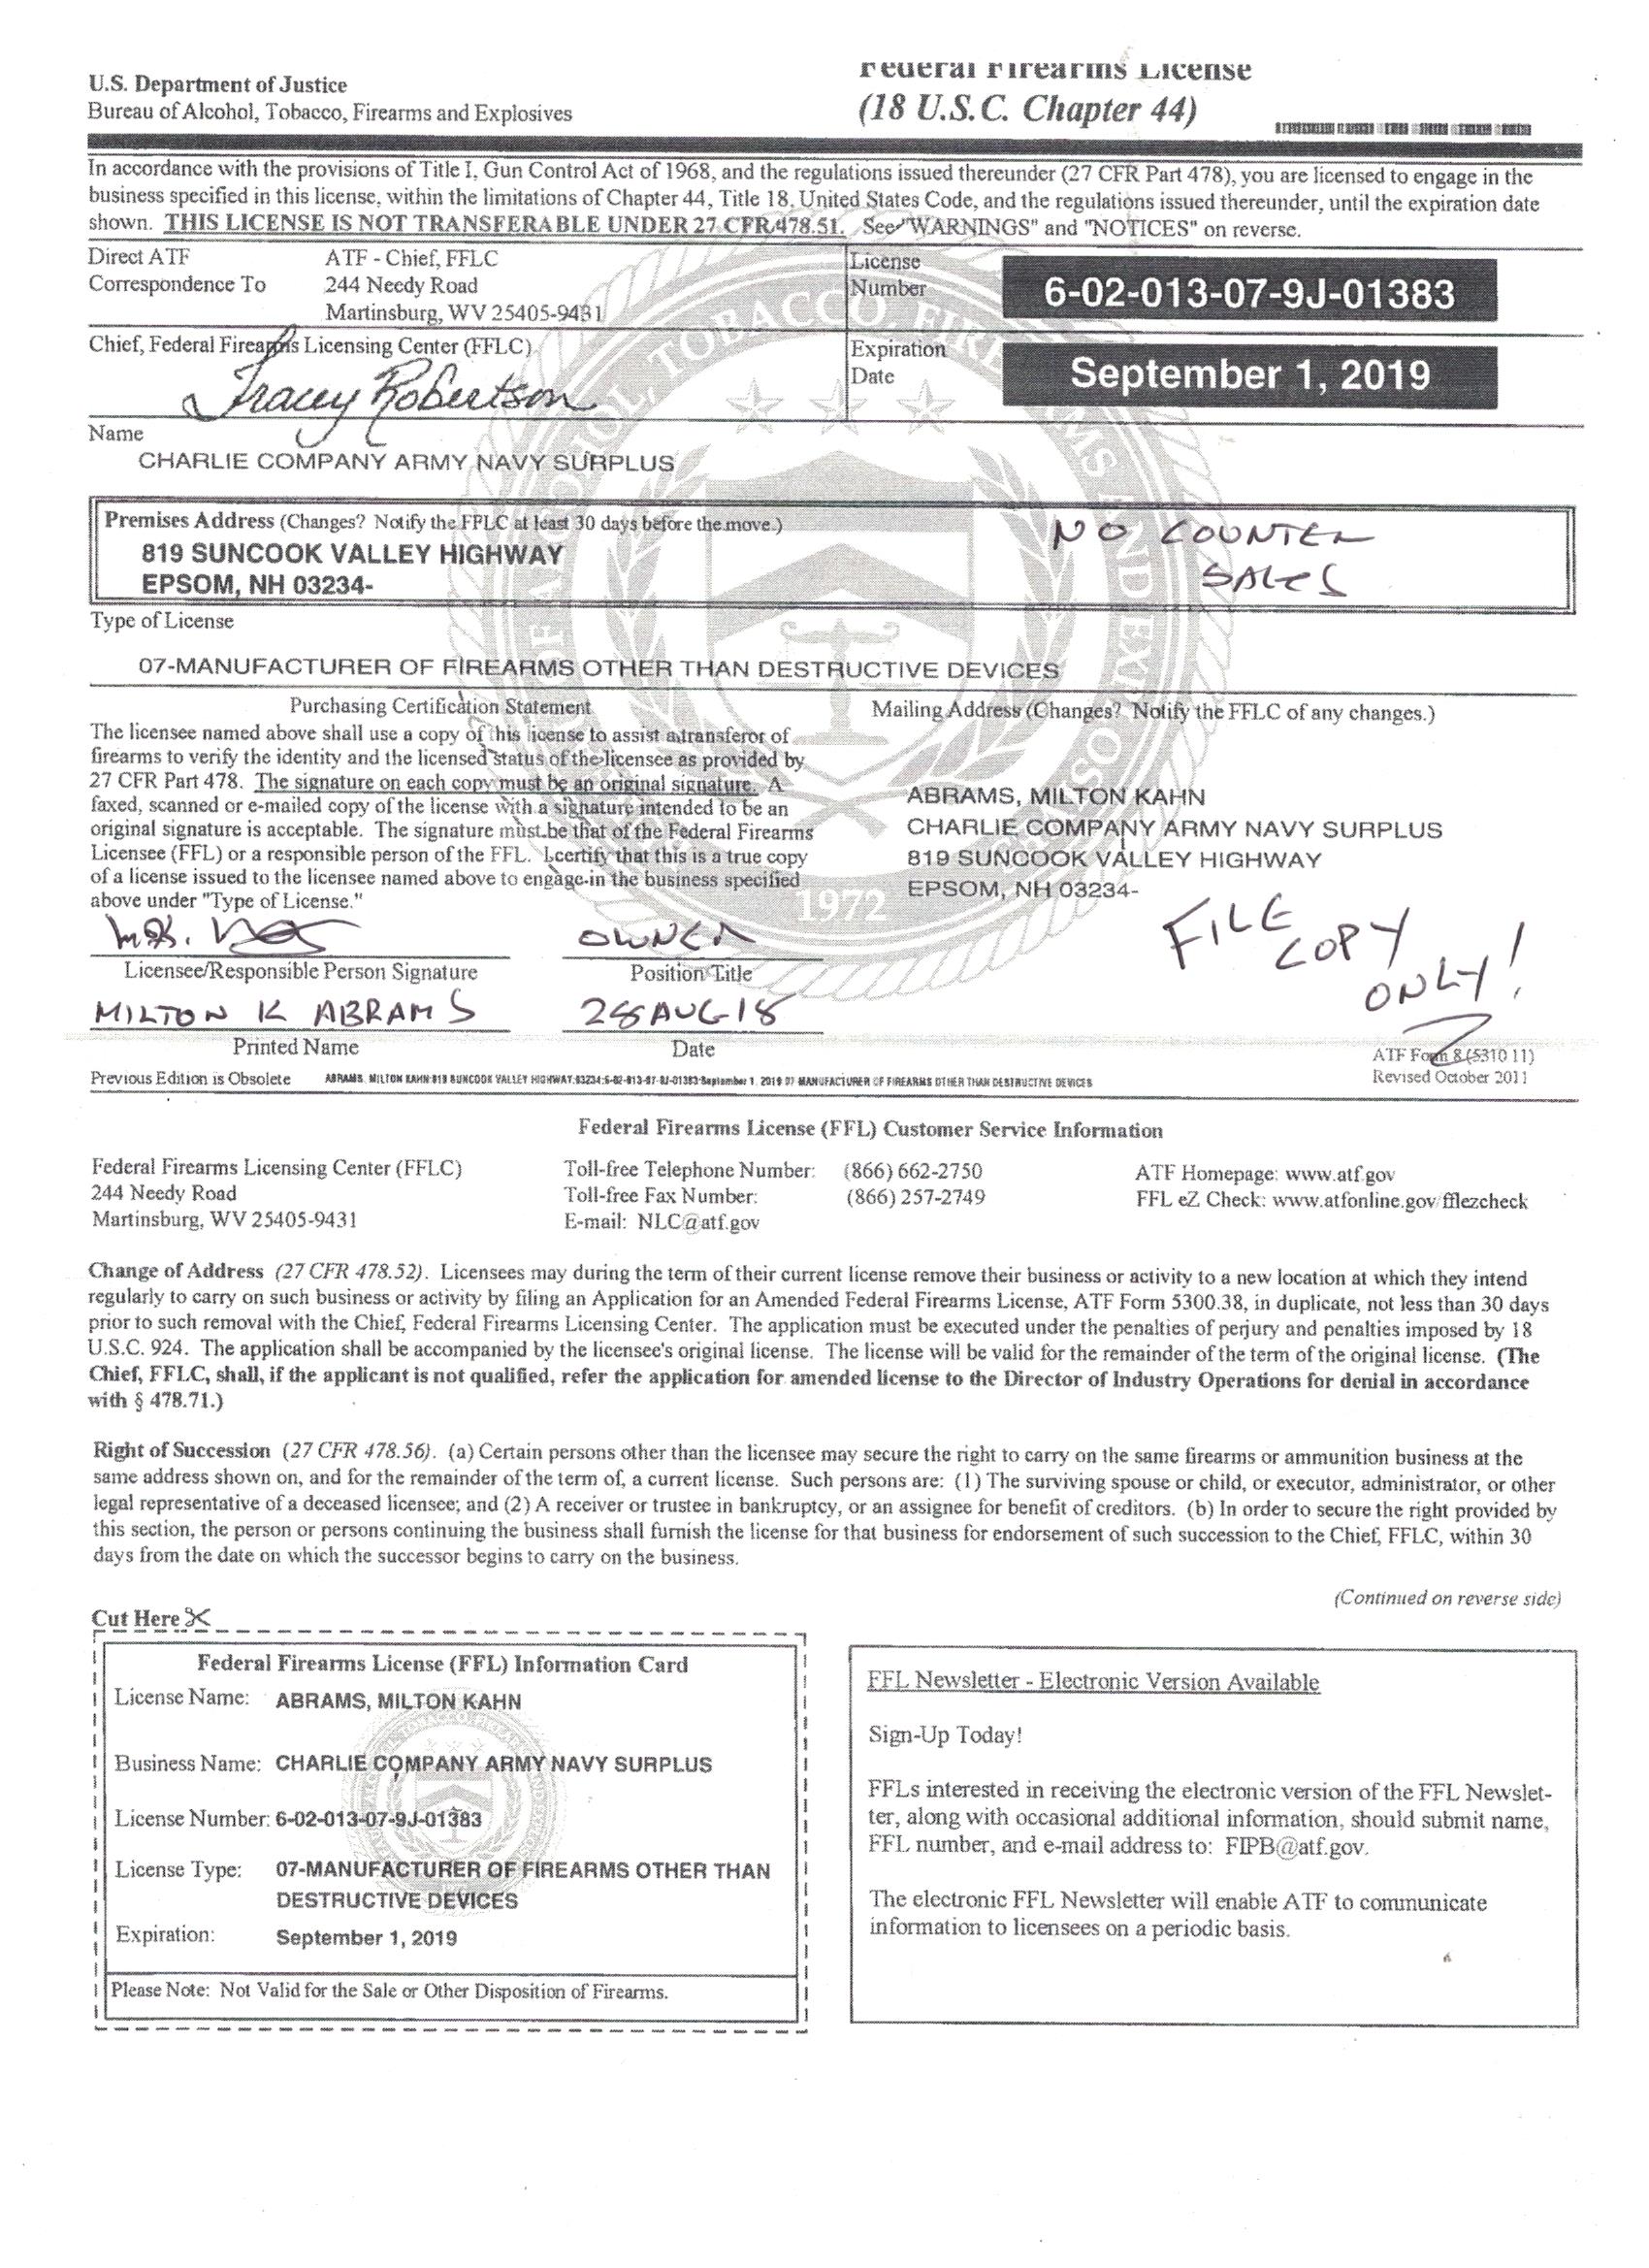 U.S. Department of Justice
Bureau of Alcohol, Tobacco, Firearms and Explosives
Federal Firearms License
(18 U.S.C. Chapter 44)
In accordance with the provisions of Title I, Gun Control Act of 1968, and the regulations issued thereunder (27 CFR Part 478), you are licensed to engage in the
business specified in this license, within the limitations of Chapter 44, Title 18, United States Code, and the regulations issued thereunder, until the expiration date
shown. THIS LICENSE IS NOT TRANSFERABLE UNDER 27 CFR 478.51. See "WARNINGS" and "NOTICES" on reverse.
Direct ATF
Correspondence To
ATF - Chief, FFLC
244 Needy Road
Martinsburg, WV 25405-9431
License
Number
6-02-013-07-9J-01383
Chief, Federal Firearms Licensing Center (FFLC)
Tracey Robertson
Expiration
Date
September 1, 2019
Name
CHARLIE COMPANY ARMY NAVY SURPLUS
Premises Address (Changes? Notify the FFLC at least 30 days before the move.)
819 SUNCOOK VALLEY HIGHWAY
EPSOM, NH 03234-
NO COUNTER
SALES
Type of License
07-MANUFACTURER OF FIREARMS OTHER THAN DESTRUCTIVE DEVICES
Purchasing Certification Statement
The licensee named above shall use a copy of this license to assist a transferor of
firearms to verify the identity and the licensed status of the licensee as provided by
27 CFR Part 478. The signature on each copy must be an original signature. A
faxed, scanned or e-mailed copy of the license with a signature intended to be an
original signature is acceptable. The signature must be that of the Federal Firearms
Licensee (FFL) or a responsible person of the FFL. I certify that this is a true copy
of a license issued to the licensee named above to engage in the business specified
above under "Type of License."
Mailing Address (Changes? Notify the FFLC of any changes.)
ABRAMS, MILTON KAHN
CHARLIE COMPANY ARMY NAVY SURPLUS
819 SUNCOOK VALLEY HIGHWAY
EPSOM, NH 03234-
FILE
COPY
ONLY!
OWNER
Licensee/Responsible Person Signature
Position Title
MILTON K ABRAMS
28AUG18
Printed Name
Date
ATF Form 8 (5310 11)
Revised October 2011
Previous Edition is Obsolete
ABRAMS, MILTON KAHN:819 SUNCOOK VALLEY HIGHWAY:03234:6-02-013-07-9J-01383:September 1, 2019:07-MANUFACTURER OF FIREARMS OTHER THAN DESTRUCTIVE DEVICES
Federal Firearms License (FFL) Customer Service Information
Federal Firearms Licensing Center (FFLC)
244 Needy Road
Martinsburg, WV 25405-9431
Toll-free Telephone Number: (866) 662-2750
Toll-free Fax Number: (866) 257-2749
E-mail: NLC@atf.gov
ATF Homepage: www.atf.gov
FFL eZ Check: www.atfonline.gov/fflezcheck
Change of Address (27 CFR 478.52). Licensees may during the term of their current license remove their business or activity to a new location at which they intend
regularly to carry on such business or activity by filing an Application for an Amended Federal Firearms License, ATF Form 5300.38, in duplicate, not less than 30 days
prior to such removal with the Chief, Federal Firearms Licensing Center. The application must be executed under the penalties of perjury and penalties imposed by 18
U.S.C. 924. The application shall be accompanied by the licensee's original license. The license will be valid for the remainder of the term of the original license. (The
Chief, FFLC, shall, if the applicant is not qualified, refer the application for amended license to the Director of Industry Operations for denial in accordance
with § 478.71.)
Right of Succession (27 CFR 478.56). (a) Certain persons other than the licensee may secure the right to carry on the same firearms or ammunition business at the
same address shown on, and for the remainder of the term of, a current license. Such persons are: (1) The surviving spouse or child, or executor, administrator, or other
legal representative of a deceased licensee; and (2) A receiver or trustee in bankruptcy, or an assignee for benefit of creditors. (b) In order to secure the right provided by
this section, the person or persons continuing the business shall furnish the license for that business for endorsement of such succession to the Chief, FFLC, within 30
days from the date on which the successor begins to carry on the business.
(Continued on reverse side)
Cut Here
Federal Firearms License (FFL) Information Card
License Name: ABRAMS, MILTON KAHN
Business Name: CHARLIE COMPANY ARMY NAVY SURPLUS
License Number: 6-02-013-07-9J-01383
License Type: 07-MANUFACTURER OF FIREARMS OTHER THAN
DESTRUCTIVE DEVICES
Expiration: September 1, 2019
Please Note: Not Valid for the Sale or Other Disposition of Firearms.
FFL Newsletter - Electronic Version Available
Sign-Up Today!
FFLs interested in receiving the electronic version of the FFL Newslet-
ter, along with occasional additional information, should submit name,
FFL number, and e-mail address to: FIPB@atf.gov.
The electronic FFL Newsletter will enable ATF to communicate
information to licensees on a periodic basis.